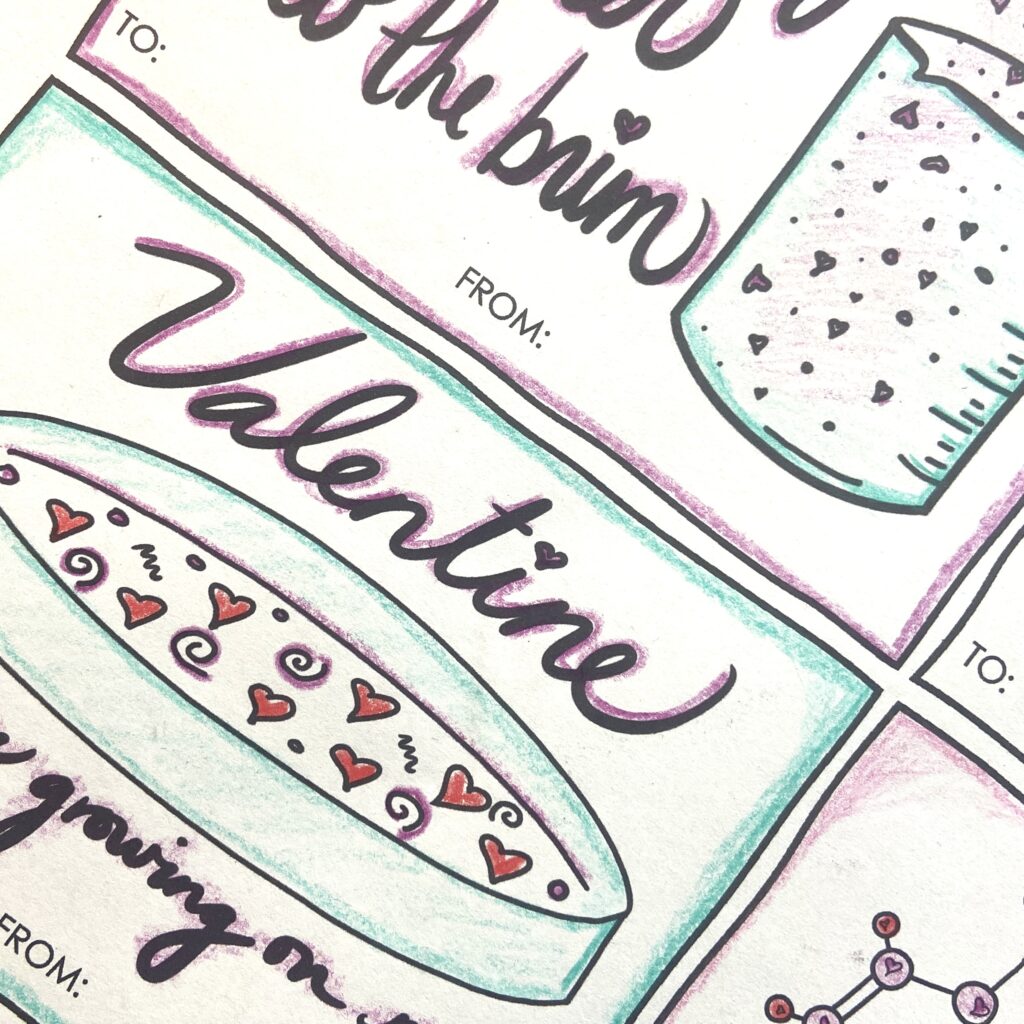 TO:
to the brim
FROM:
Valentine
growing on
FROM:
TO: